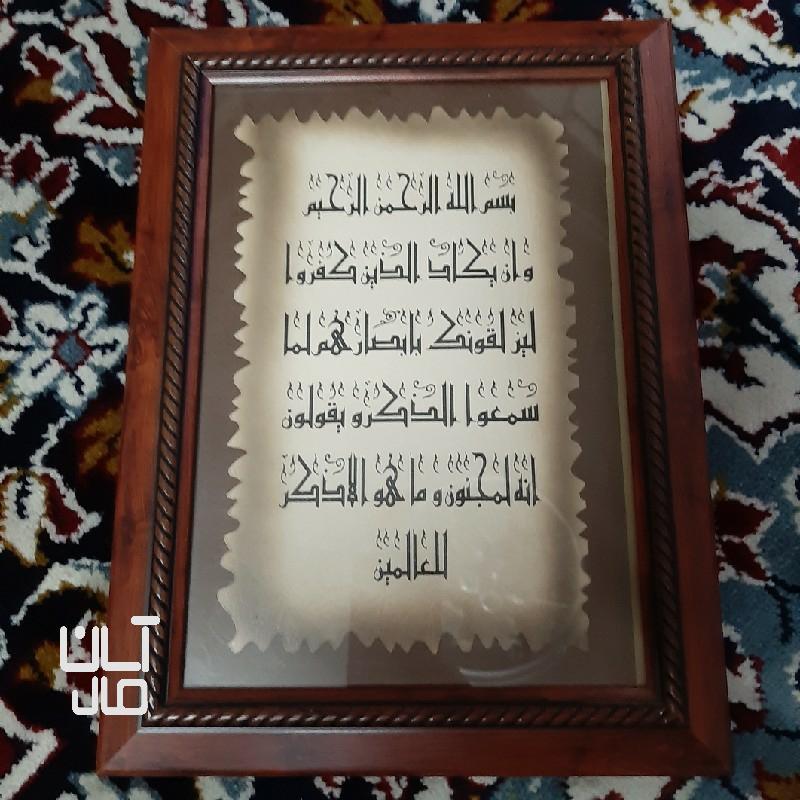 بسم الله الرحمن الرحیم
وان یکاد الذین کفروا
لیز لقونک بابصارهم لما
سمعوا الذکر و یقولون
انه لمجنون و ما هو الا ذکر
للعالمین
آسان
مال